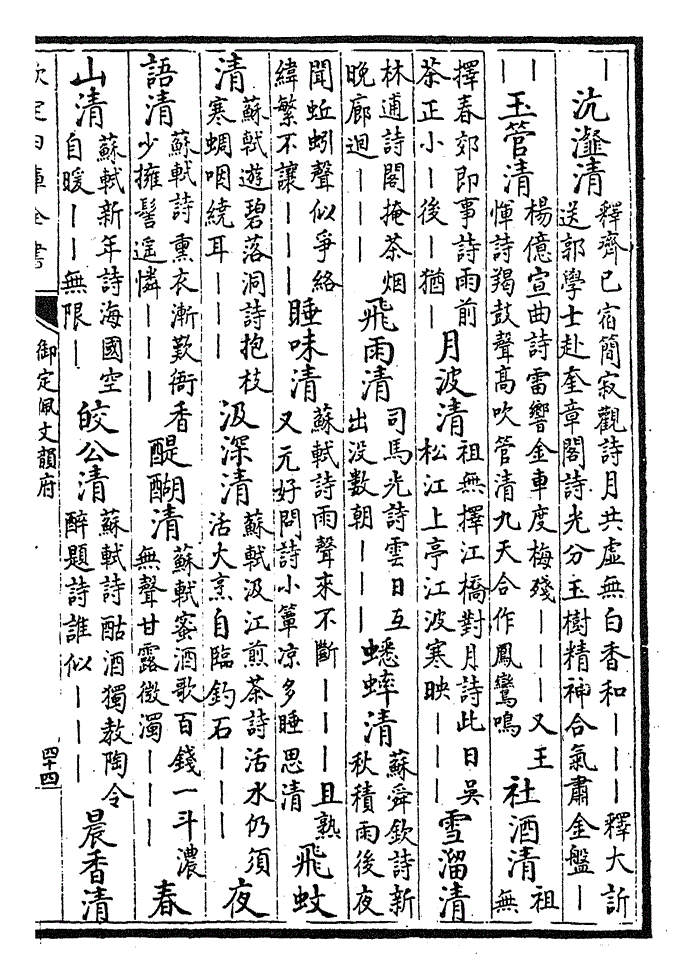 丨沆瀣清釋齊已宿簡寂觀詩月共虛無白香和丨丨丨釋大訢送郭學士赴奎章閣詩光分玉樹精神合氣肅金盤丨
丨丨玉管清楊億宣曲詩雷響金車度梅殘丨丨丨又王惲詩羯鼓聲高吹管清九天合作鳳鸞鳴社酒清祖無
擇春郊即事詩雨前茶正小丨後丨猶丨月波清祖無擇江橋對月詩此日吳松江上亭江波寒映丨丨丨雪溜清
林逋詩閣掩茶烟晚廊迴丨丨丨飛雨清司馬光詩雲日互出没數朝丨丨丨蟋蟀清蘇舜欽詩新秋積雨後夜
聞蚯蚓聲似爭絡緯繁不讓丨丨丨睡味清蘇軾詩雨聲來不斷丨丨丨且熟又元好問詩小簟凉多睡思清飛蚊
清蘇軾遊碧落洞詩抱枝寒蜩咽繞耳丨丨丨汲深清蘇軾汲江煎茶詩活水仍須活大烹自臨釣石丨丨丨夜
語清蘇軾詩熏衣漸歎衙香少擁髻遥憐丨丨丨醍醐清蘇軾蜜酒歌百錢一斗濃無聲甘露微濁丨丨丨春
山清蘇軾新年詩海國空自暖丨丨無限丨皎公清蘇軾詩酤酒獨教陶令醉題詩誰似丨丨丨晨香清
欽定四庫全書
御定佩文韻府
四十四